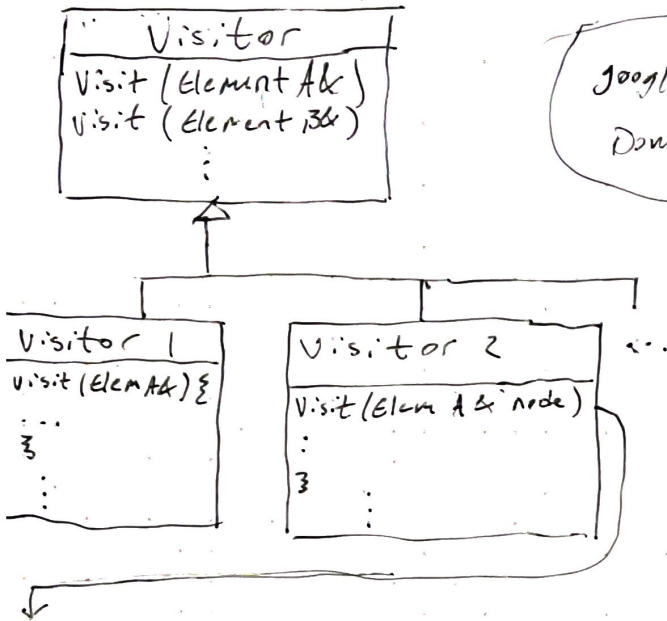 Visitor
Visit (Element A&)
visit (Element B&)
⋮
googl
Don
Visitor 1
visit (Elem A&) {
...
}
⋮
Visitor 2
Visit (Elem A & node)
⋮
}
⋮
...